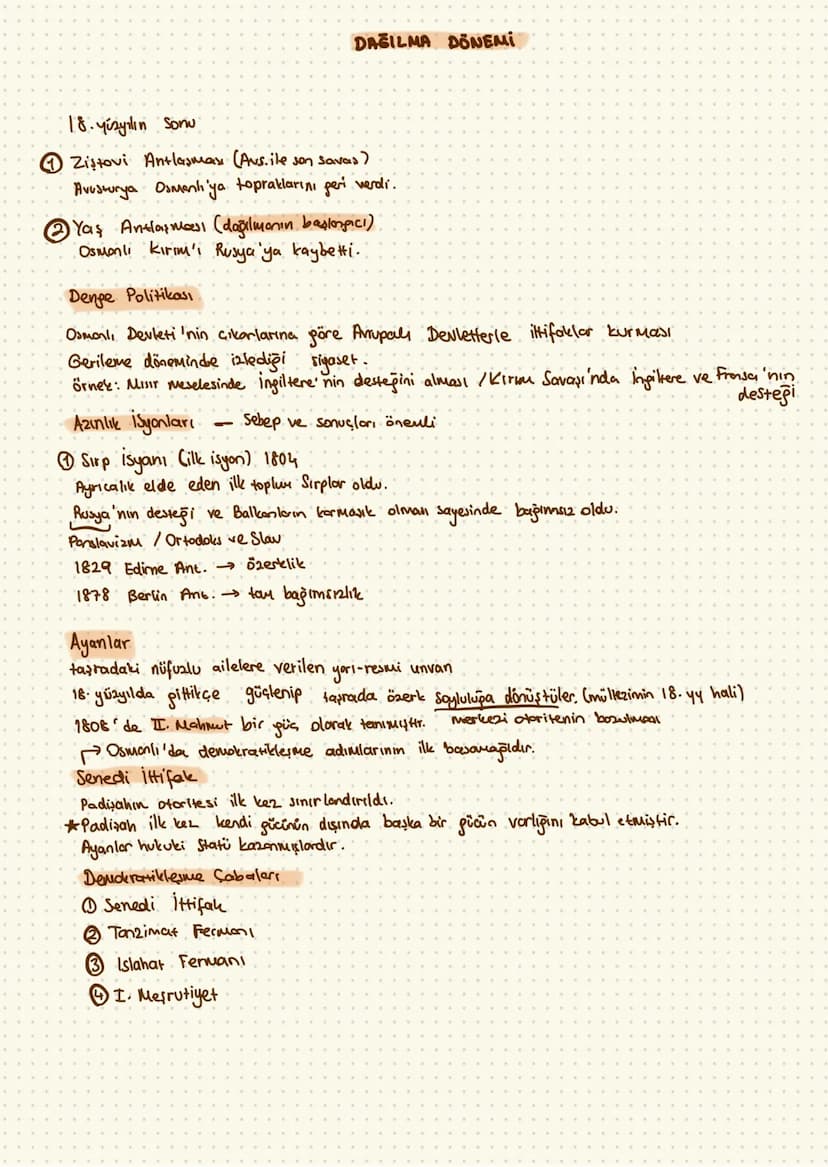 DAĞILMA DÖNEMİ
18. yüzyılın sonu
① Ziştovi Antlaşması (Avs. ile son savaş)
Avusturya Osmanlı'ya topraklarını geri verdi.
② Yaş Antlaşması (dağılmanın başlangıcı)
Osmanlı Kırım'ı Rusya'ya kaybetti.
Denge Politikası
Osmanlı Devleti'nin çıkarlarına göre Avrupalı Devletlerle ittifaklar kurması
Gerileme döneminde izlediği siyaset.
örnek: Mısır Meselesinde İngiltere'nin desteğini alması / Kırım Savaşı'nda İngiltere ve Fransa'nın
desteği
Azınlık İsyanları — Sebep ve sonuçları önemli
① Sırp İsyanı (ilk isyan) 1804
Ayrıcalık elde eden ilk toplum Sırplar oldu.
Rusya'nın desteği ve Balkanların karmaşık olması sayesinde bağımsız oldu.
Panslavizm / Ortodoks ve Slav
1829 Edirne Ant. → özerklik
1878 Berlin Ant. → tam bağımsızlık
Ayanlar
taşradaki nüfuzlu ailelere verilen yarı-resmi unvan
18. yüzyılda gittikçe güçlenip taşrada özerk soyluluğa dönüştüler. (mültezimin 18. yy hali)
1808'de II. Mahmut bir güç olarak tanımıştır. merkezi otoritenin bozulması
↱ Osmanlı'da demokratikleşme adımlarının ilk basamağıdır.
Senedi İttifak
Padişahın otoritesi ilk kez sınırlandırıldı.
★Padişah ilk kez kendi gücünün dışında başka bir gücün varlığını kabul etmiştir.
Ayanlar hukuki statü kazanmışlardır.
Demokratikleşme Çabaları
① Senedi İttifak
② Tanzimat Fermanı
③ Islahat Fermanı
④ I. Meşrutiyet